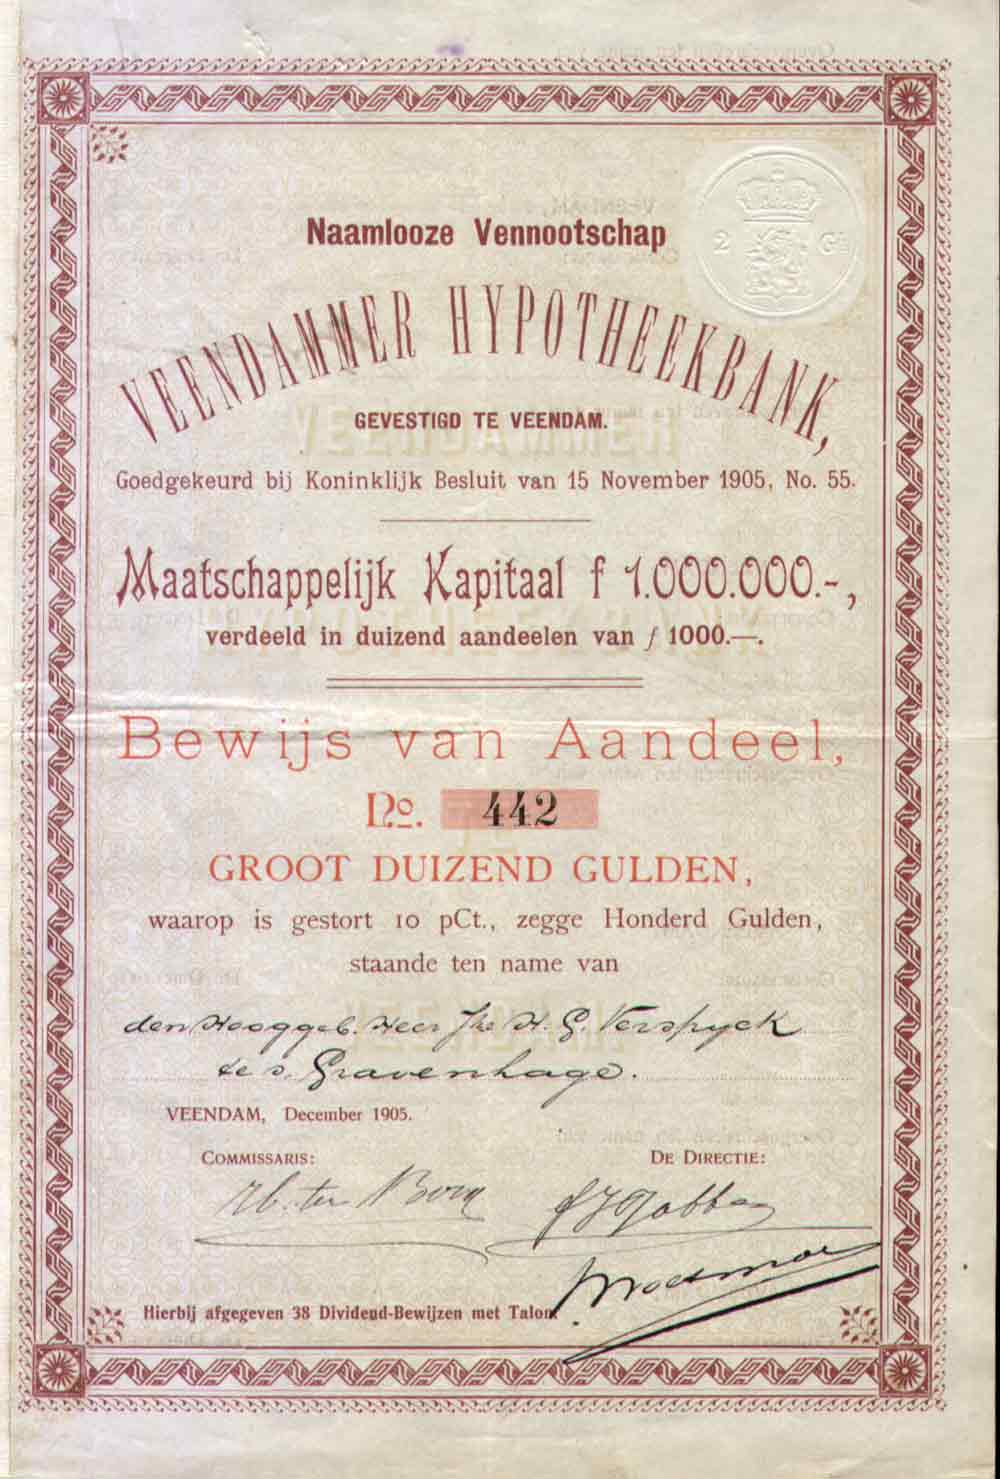 2 Gn
Naamlooze Vennootschap
VEENDAMMER HYPOTHEEKBANK,
GEVESTIGD TE VEENDAM.
Goedgekeurd bij Koninklijk Besluit van 15 November 1905, No. 55.
Maatschappelijk Kapitaal f 1.000.000.-,
verdeeld in duizend aandeelen van f 1000.—.
Bewijs van Aandeel,
No. 442
GROOT DUIZEND GULDEN,
waarop is gestort 10 pCt., zegge Honderd Gulden,
staande ten name van
den Hooggeb. Heer Jhr H. G. Verspyck
te s. Gravenhage.
VEENDAM, December 1905.
COMMISSARIS: DE DIRECTIE:
Hierbij afgegeven 38 Dividend-Bewijzen met Talon